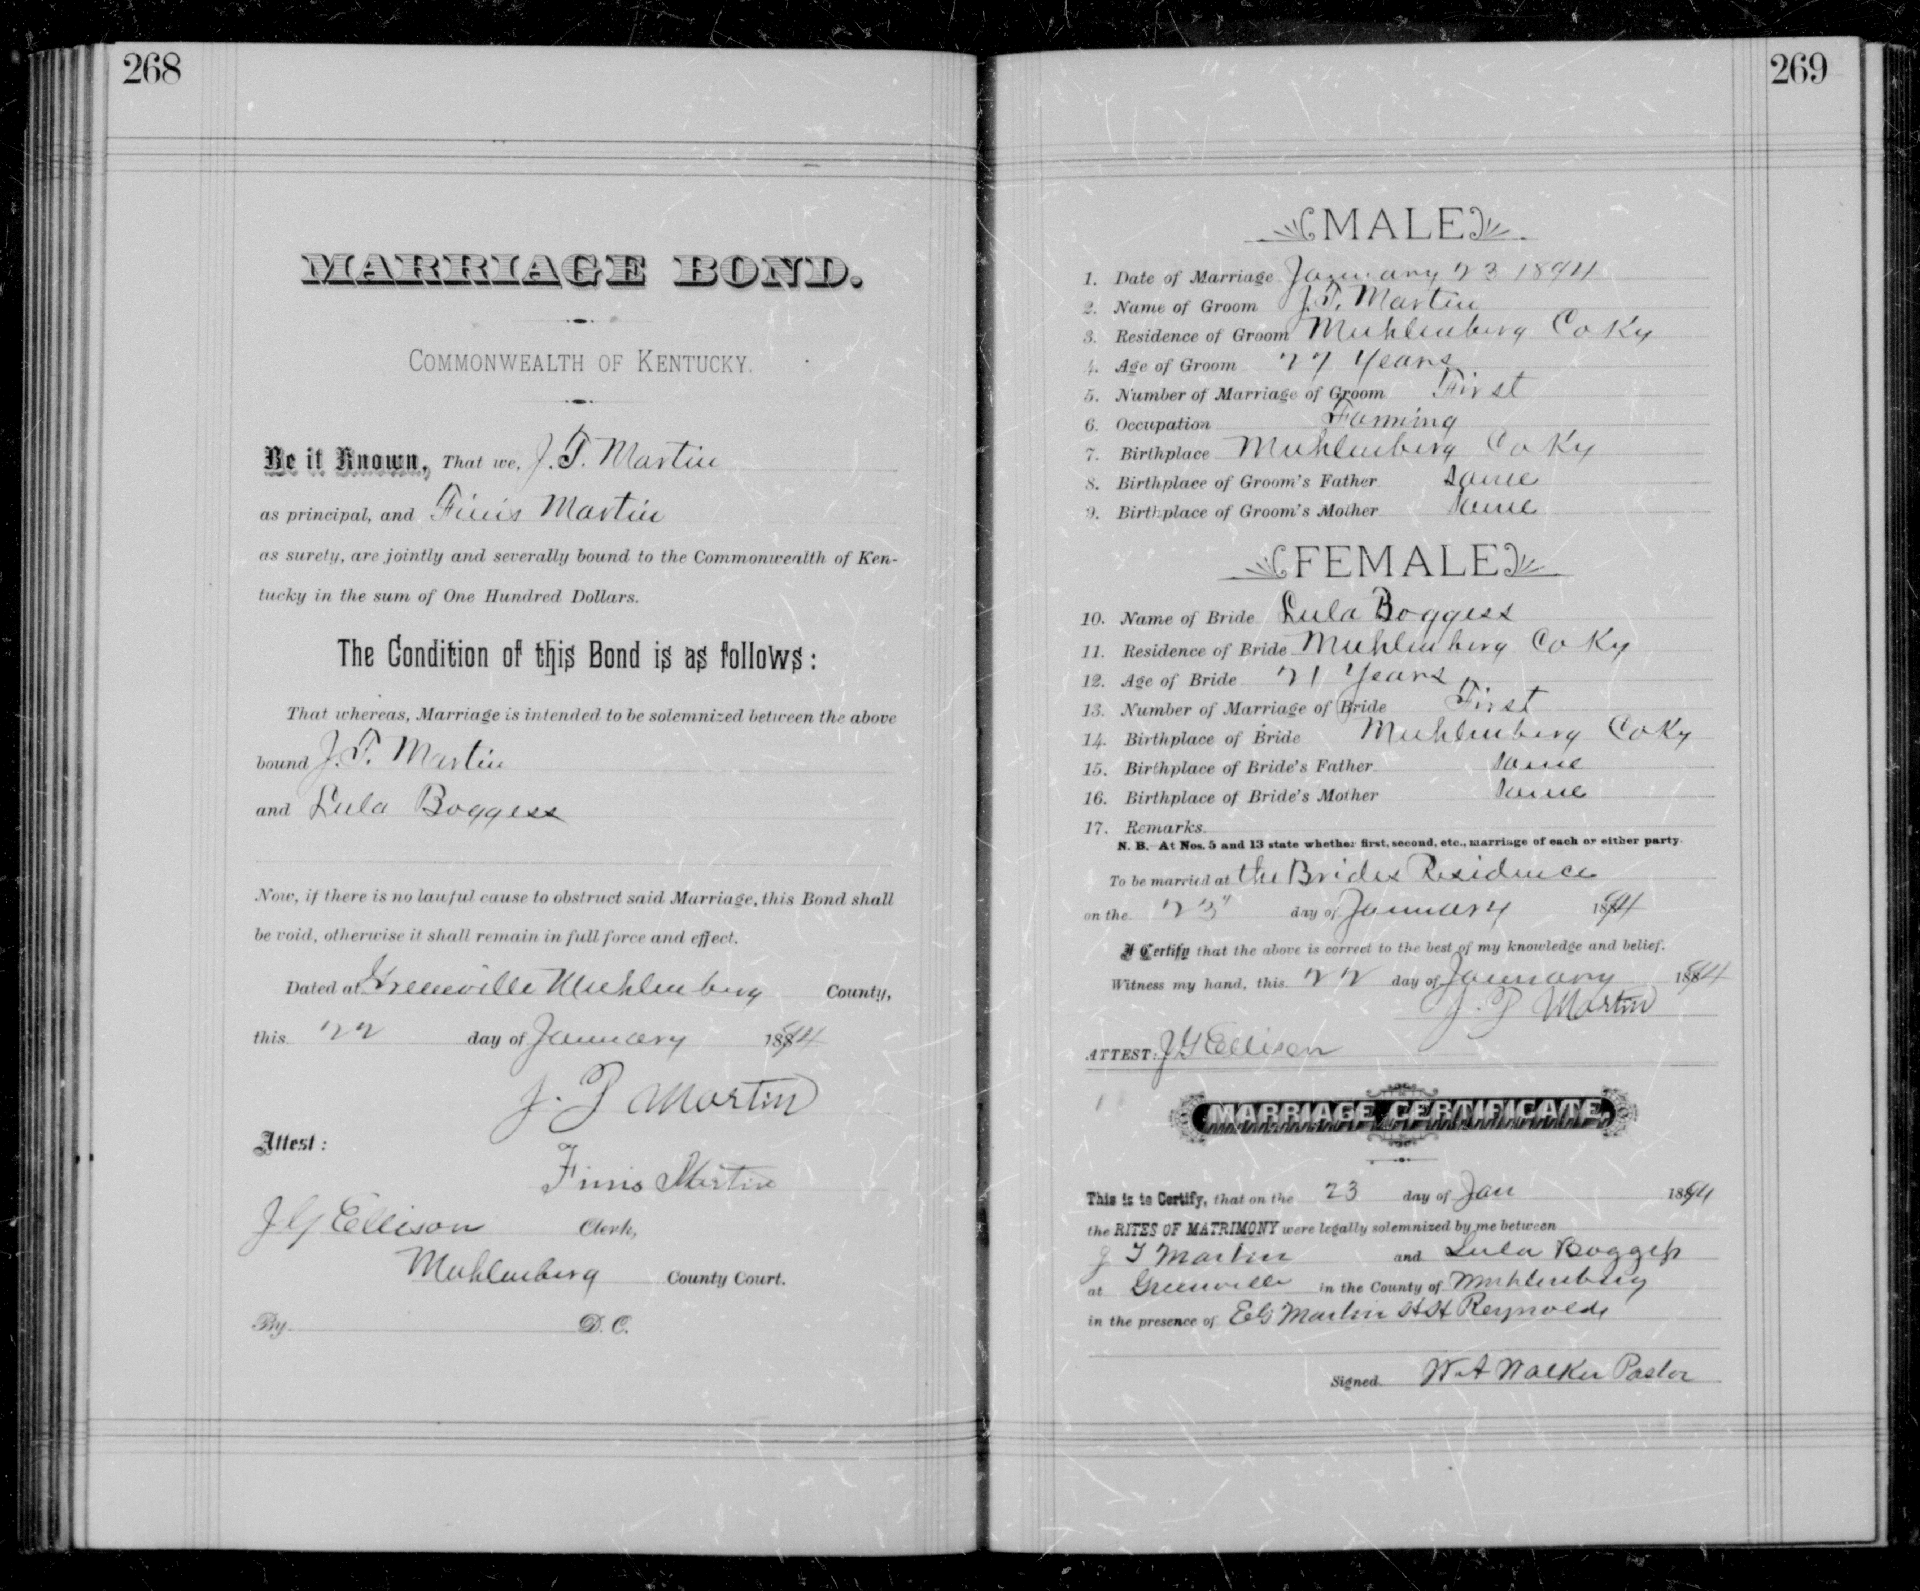 268
MARRIAGE BOND.
COMMONWEALTH OF KENTUCKY.
Be it Known, That we, J. T. Martin
as principal, and Finis Martin
as surety, are jointly and severally bound to the Commonwealth of Ken-
tucky in the sum of One Hundred Dollars.
The Condition of this Bond is as follows:
That whereas, Marriage is intended to be solemnized between the above
bound J. T. Martin
and Lula Boggess
Now, if there is no lawful cause to obstruct said Marriage, this Bond shall
be void, otherwise it shall remain in full force and effect.
Dated at Greenville Muhlenberg County,
this 22 day of January 1894
J. T Martin
Attest:
Finis Martin
J G Ellison Clerk,
Muhlenberg County Court.
By D. C.
269
MALE
1. Date of Marriage January 23 1894
2. Name of Groom J. T. Martin
3. Residence of Groom Muhlenberg Co Ky
4. Age of Groom 27 Years
5. Number of Marriage of Groom First
6. Occupation Farming
7. Birthplace Muhlenberg Co Ky
8. Birthplace of Groom's Father Same
9. Birthplace of Groom's Mother Same
FEMALE
10. Name of Bride Lula Boggess
11. Residence of Bride Muhlenberg Co Ky
12. Age of Bride 21 Years
13. Number of Marriage of Bride First
14. Birthplace of Bride Muhlenberg Co Ky
15. Birthplace of Bride's Father Same
16. Birthplace of Bride's Mother Same
17. Remarks.
N. B.—At Nos. 5 and 13 state whether first, second, etc., marriage of each or either party.
To be married at the Brides Residence
on the 23" day of January 1894
I Certify that the above is correct to the best of my knowledge and belief.
Witness my hand, this 22 day of January 1894
J. T Martin
ATTEST: J G Ellison
MARRIAGE CERTIFICATE.
This is to Certify, that on the 23 day of Jan 1894
the RITES OF MATRIMONY were legally solemnized by me between
J T Martin and Lula Boggess
at Greenville in the County of Muhlenberg
in the presence of E G Martin H H Reynolds
Signed. W. A Walker Pastor